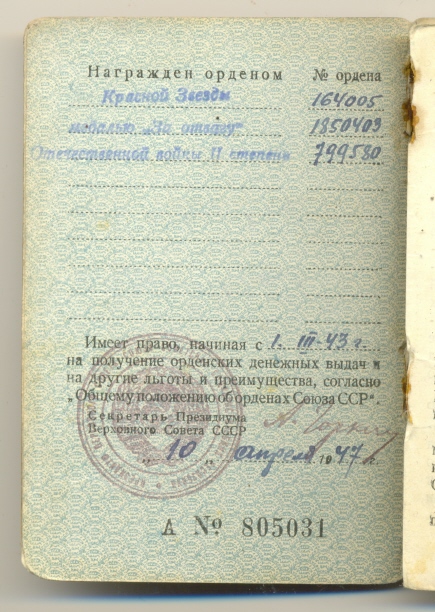 Награжден орденом № ордена
Красной Звезды 164005
медалью „За отвагу" 1850403
Отечественной войны II степени 799580
Имеет право, начиная с 1. III-43 г.
на получение орденских денежных выдач и
на другие льготы и преимущества, согласно
„Общему положению об орденах Союза ССР".
Секретарь Президиума
Верховного Совета СССР
„10" апреля 1947 г.
А № 805031